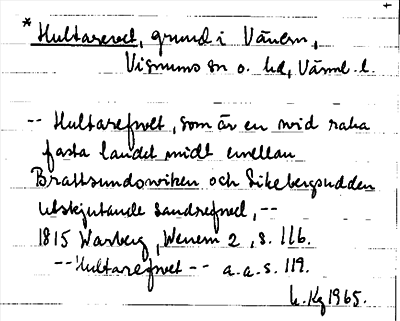 * Hultarevet, grund i Vänern,
Visnums sn o. hd, Värml. l.
-- Hultarefvet, som är en wid raka
fasta landet midt emellan
Brattsundswiken och Ekebergsudden
utskjutande sandrefvel, --
1815 Warberg, Wenern 2, s. 116.
-- Hultarefvet -- a.a. s. 119.
Kg 1965.